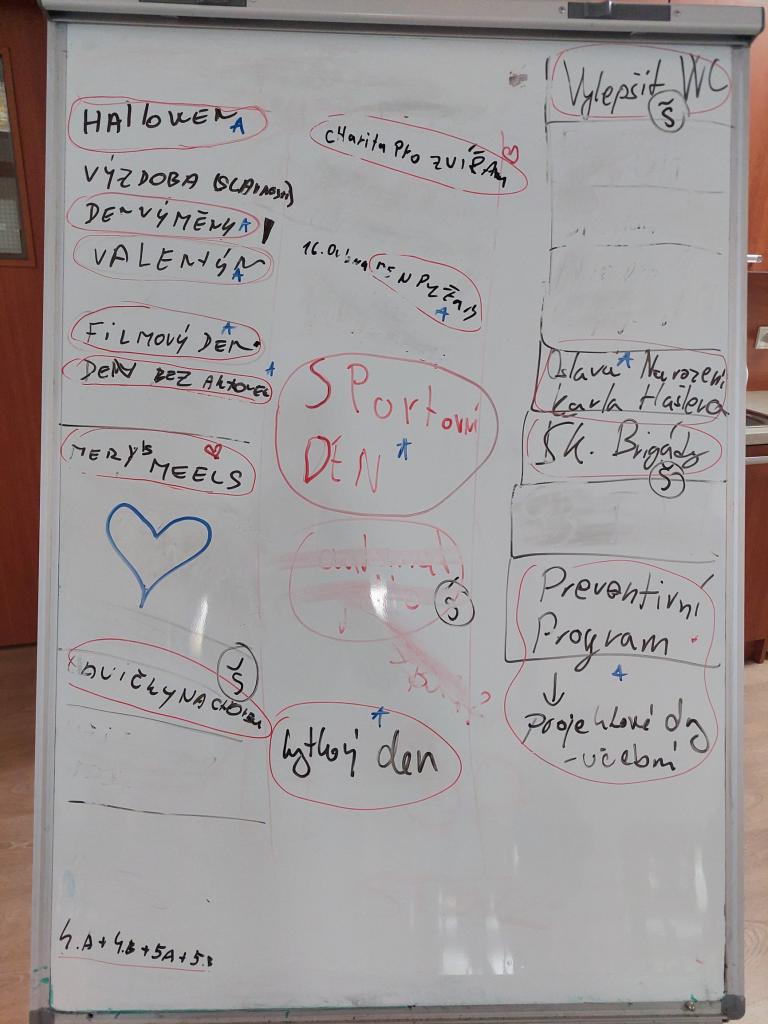 HAllOWEN A
VÝZDOBA
DEN VÝMĚNY A !
VALENTÝN A
FILMOVÝ DEN A
DEN BEZ AKTOVEK A
MERY'S MEELS
Š
NA CHODBU
4.A + 4.B + 5A + 5.B
CHARITA PRO ZVÍŘATA
16. Dubna DEN PYŽAM A
SPORTOVNÍ
DEN A
Š
kytkový den A
Vylepšit WC
Š
Oslava A Narození
Karla Hašlera
ŠK. Brigády
Š
Preventivní
Program
A
↓
projektové dny
- učební